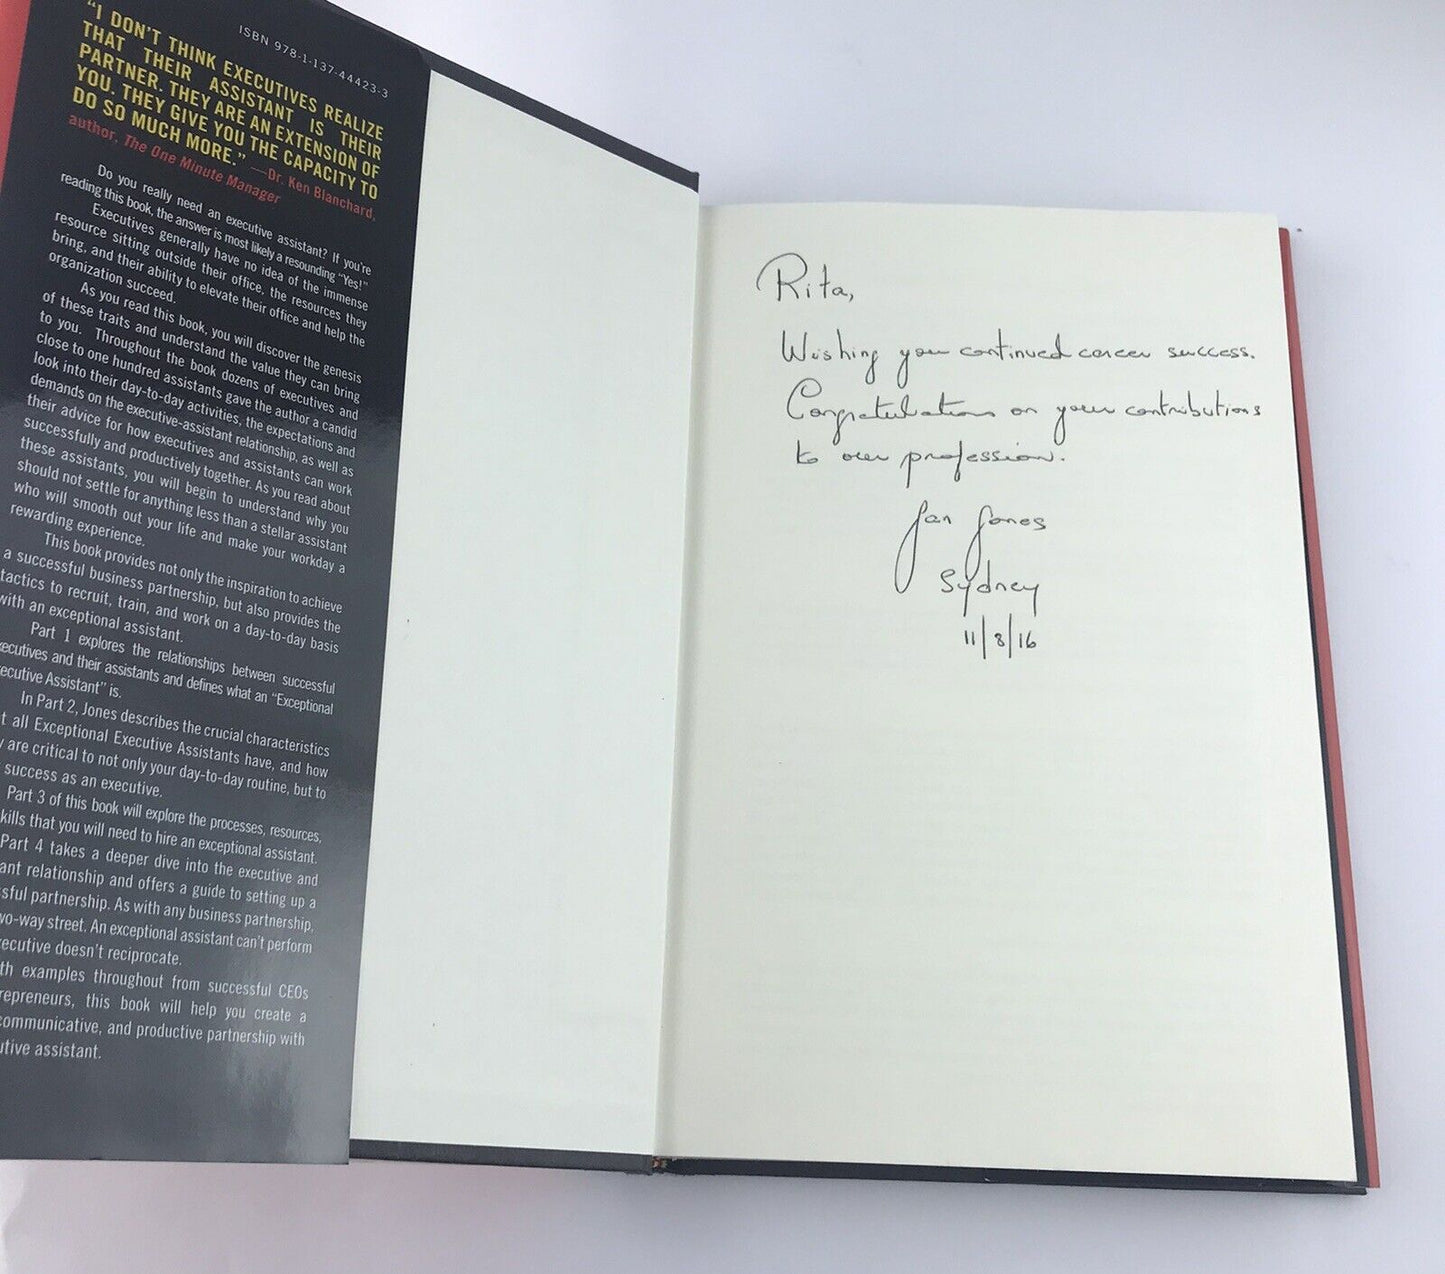 ISBN 978-1-137-44423-3
"I DON'T THINK EXECUTIVES REALIZE
THAT THEIR ASSISTANT IS THEIR
PARTNER. THEY ARE AN EXTENSION OF
YOU. THEY GIVE YOU THE CAPACITY TO
DO SO MUCH MORE." —Dr. Ken Blanchard,
author, The One Minute Manager
Do you really need an executive assistant? If you're
reading this book, the answer is most likely a resounding "Yes!"
Executives generally have no idea of the immense
resource sitting outside their office, the resources they
bring, and their ability to elevate their office and help the
organization succeed.
As you read this book, you will discover the genesis
of these traits and understand the value they can bring
to you. Throughout the book dozens of executives and
close to one hundred assistants gave the author a candid
look into their day-to-day activities, the expectations and
demands on the executive-assistant relationship, as well as
their advice for how executives and assistants can work
successfully and productively together. As you read about
these assistants, you will begin to understand why you
should not settle for anything less than a stellar assistant
who will smooth out your life and make your workday a
rewarding experience.
This book provides not only the inspiration to achieve
a successful business partnership, but also provides the
tactics to recruit, train, and work on a day-to-day basis
with an exceptional assistant.
Part 1 explores the relationships between successful
xecutives and their assistants and defines what an "Exceptional
ecutive Assistant" is.
In Part 2, Jones describes the crucial characteristics
t all Exceptional Executive Assistants have, and how
y are critical to not only your day-to-day routine, but to
success as an executive.
Part 3 of this book will explore the processes, resources,
kills that you will need to hire an exceptional assistant.
Part 4 takes a deeper dive into the executive and
ant relationship and offers a guide to setting up a
sful partnership. As with any business partnership,
wo-way street. An exceptional assistant can't perform
ecutive doesn't reciprocate.
th examples throughout from successful CEOs
repreneurs, this book will help you create a
communicative, and productive partnership with
utive assistant.
Rita,
Wishing you continued career success.
Congratulations on your contributions
to our profession.
Jan Jones
Sydney
11/8/16